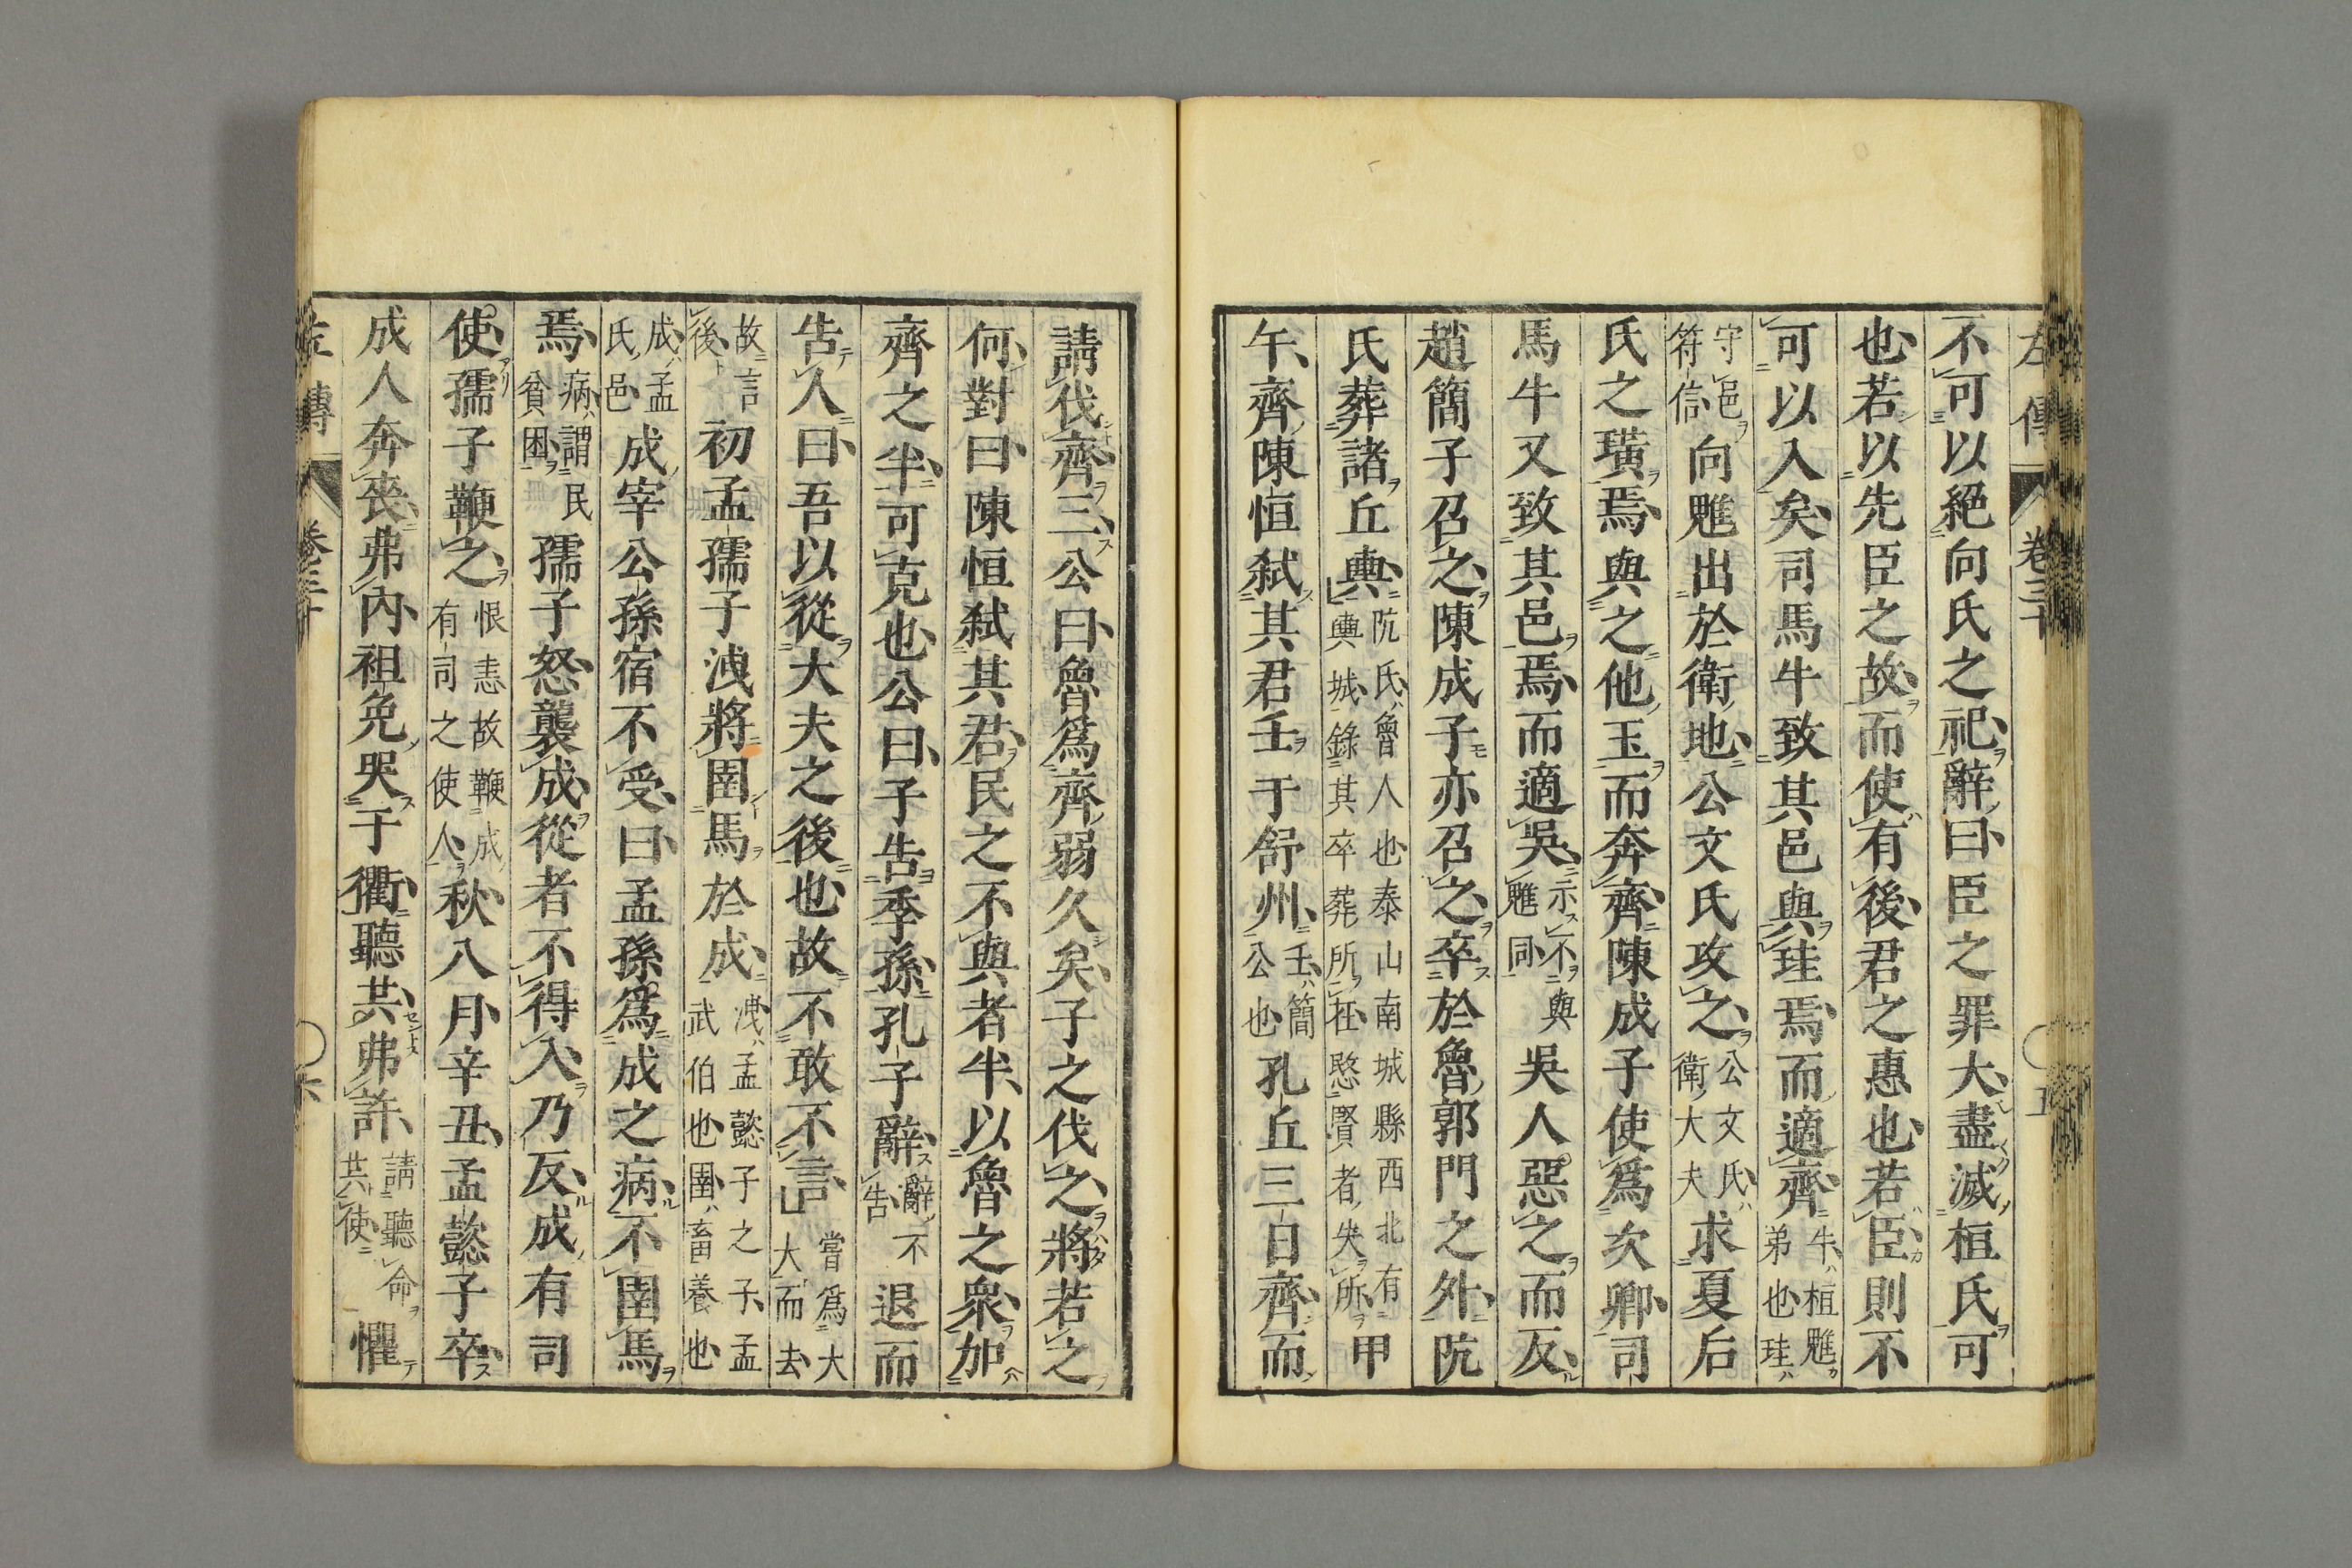 左傳 卷三十 五
不可以絕向氏之祀辭曰臣之罪大盡滅桓氏可
也若以先臣之故而使有後君之惠也若臣則不
可以入矣司馬牛致其邑與珪焉而適齊牛桓魋弟也珪
守邑符信向魋出於衛地公文氏攻之公文氏衛大夫求夏后
氏之璜焉與之他玉而奔齊陳成子使為次卿司
馬牛又致其邑焉而適吳示不與魋同吳人惡之而反
趙簡子召之陳成子亦召之卒於魯郭門之外阬
氏葬諸丘輿阬氏魯人也泰山南城縣西北有輿城錄其卒葬所在愍賢者失所甲
午齊陳恒弒其君壬于舒州壬簡公也孔丘三日齊而
請伐齊三公曰魯爲齊弱久矣子之伐之將若之
何對曰陳恒弒其君民之不與者半以魯之衆加
齊之半可克也公曰子告季孫孔子辭辭不告退而
告人曰吾以從大夫之後也故不敢不言嘗爲大大而去
故言後初孟孺子洩將圉馬於成洩孟懿子之子孟武伯也圉畜養也
成孟氏邑成宰公孫宿不受曰孟孫爲成之病不圉馬
焉病謂民貧困孺子怒襲成從者不得入乃反成有司
使孺子鞭之恨恚故鞭成有司之使人秋八月辛丑孟懿子卒
成人奔喪弗內袒免哭于衢聽共弗許請聽命共使懼
左傳 卷三十 六